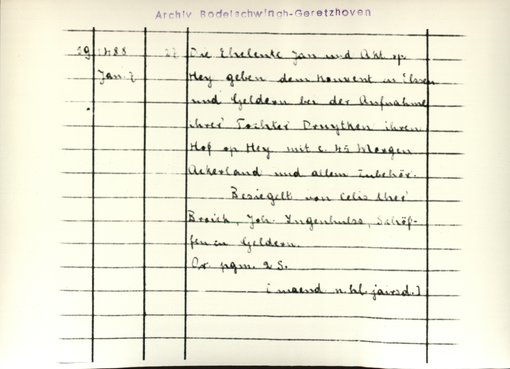 Archiv Bodelschwingh-Geretzhoven
29 1488 27 Die Eheleute Jan und Akl op
Jan. 7 Hey geben dem Konvent in Essen
und Geldern bei der Aufnahme
ihrer Tochter Druytken ihren
Hof op Hey mit c. 45 Morgen
Ackerland und allem Zubehör.
Besiegelt von Celis ther
Broich, Joh. Ingenhulss, Schöf-
fen zu Geldern.
Or. pgm. 2 S.
[ n. hl. jairsd.]